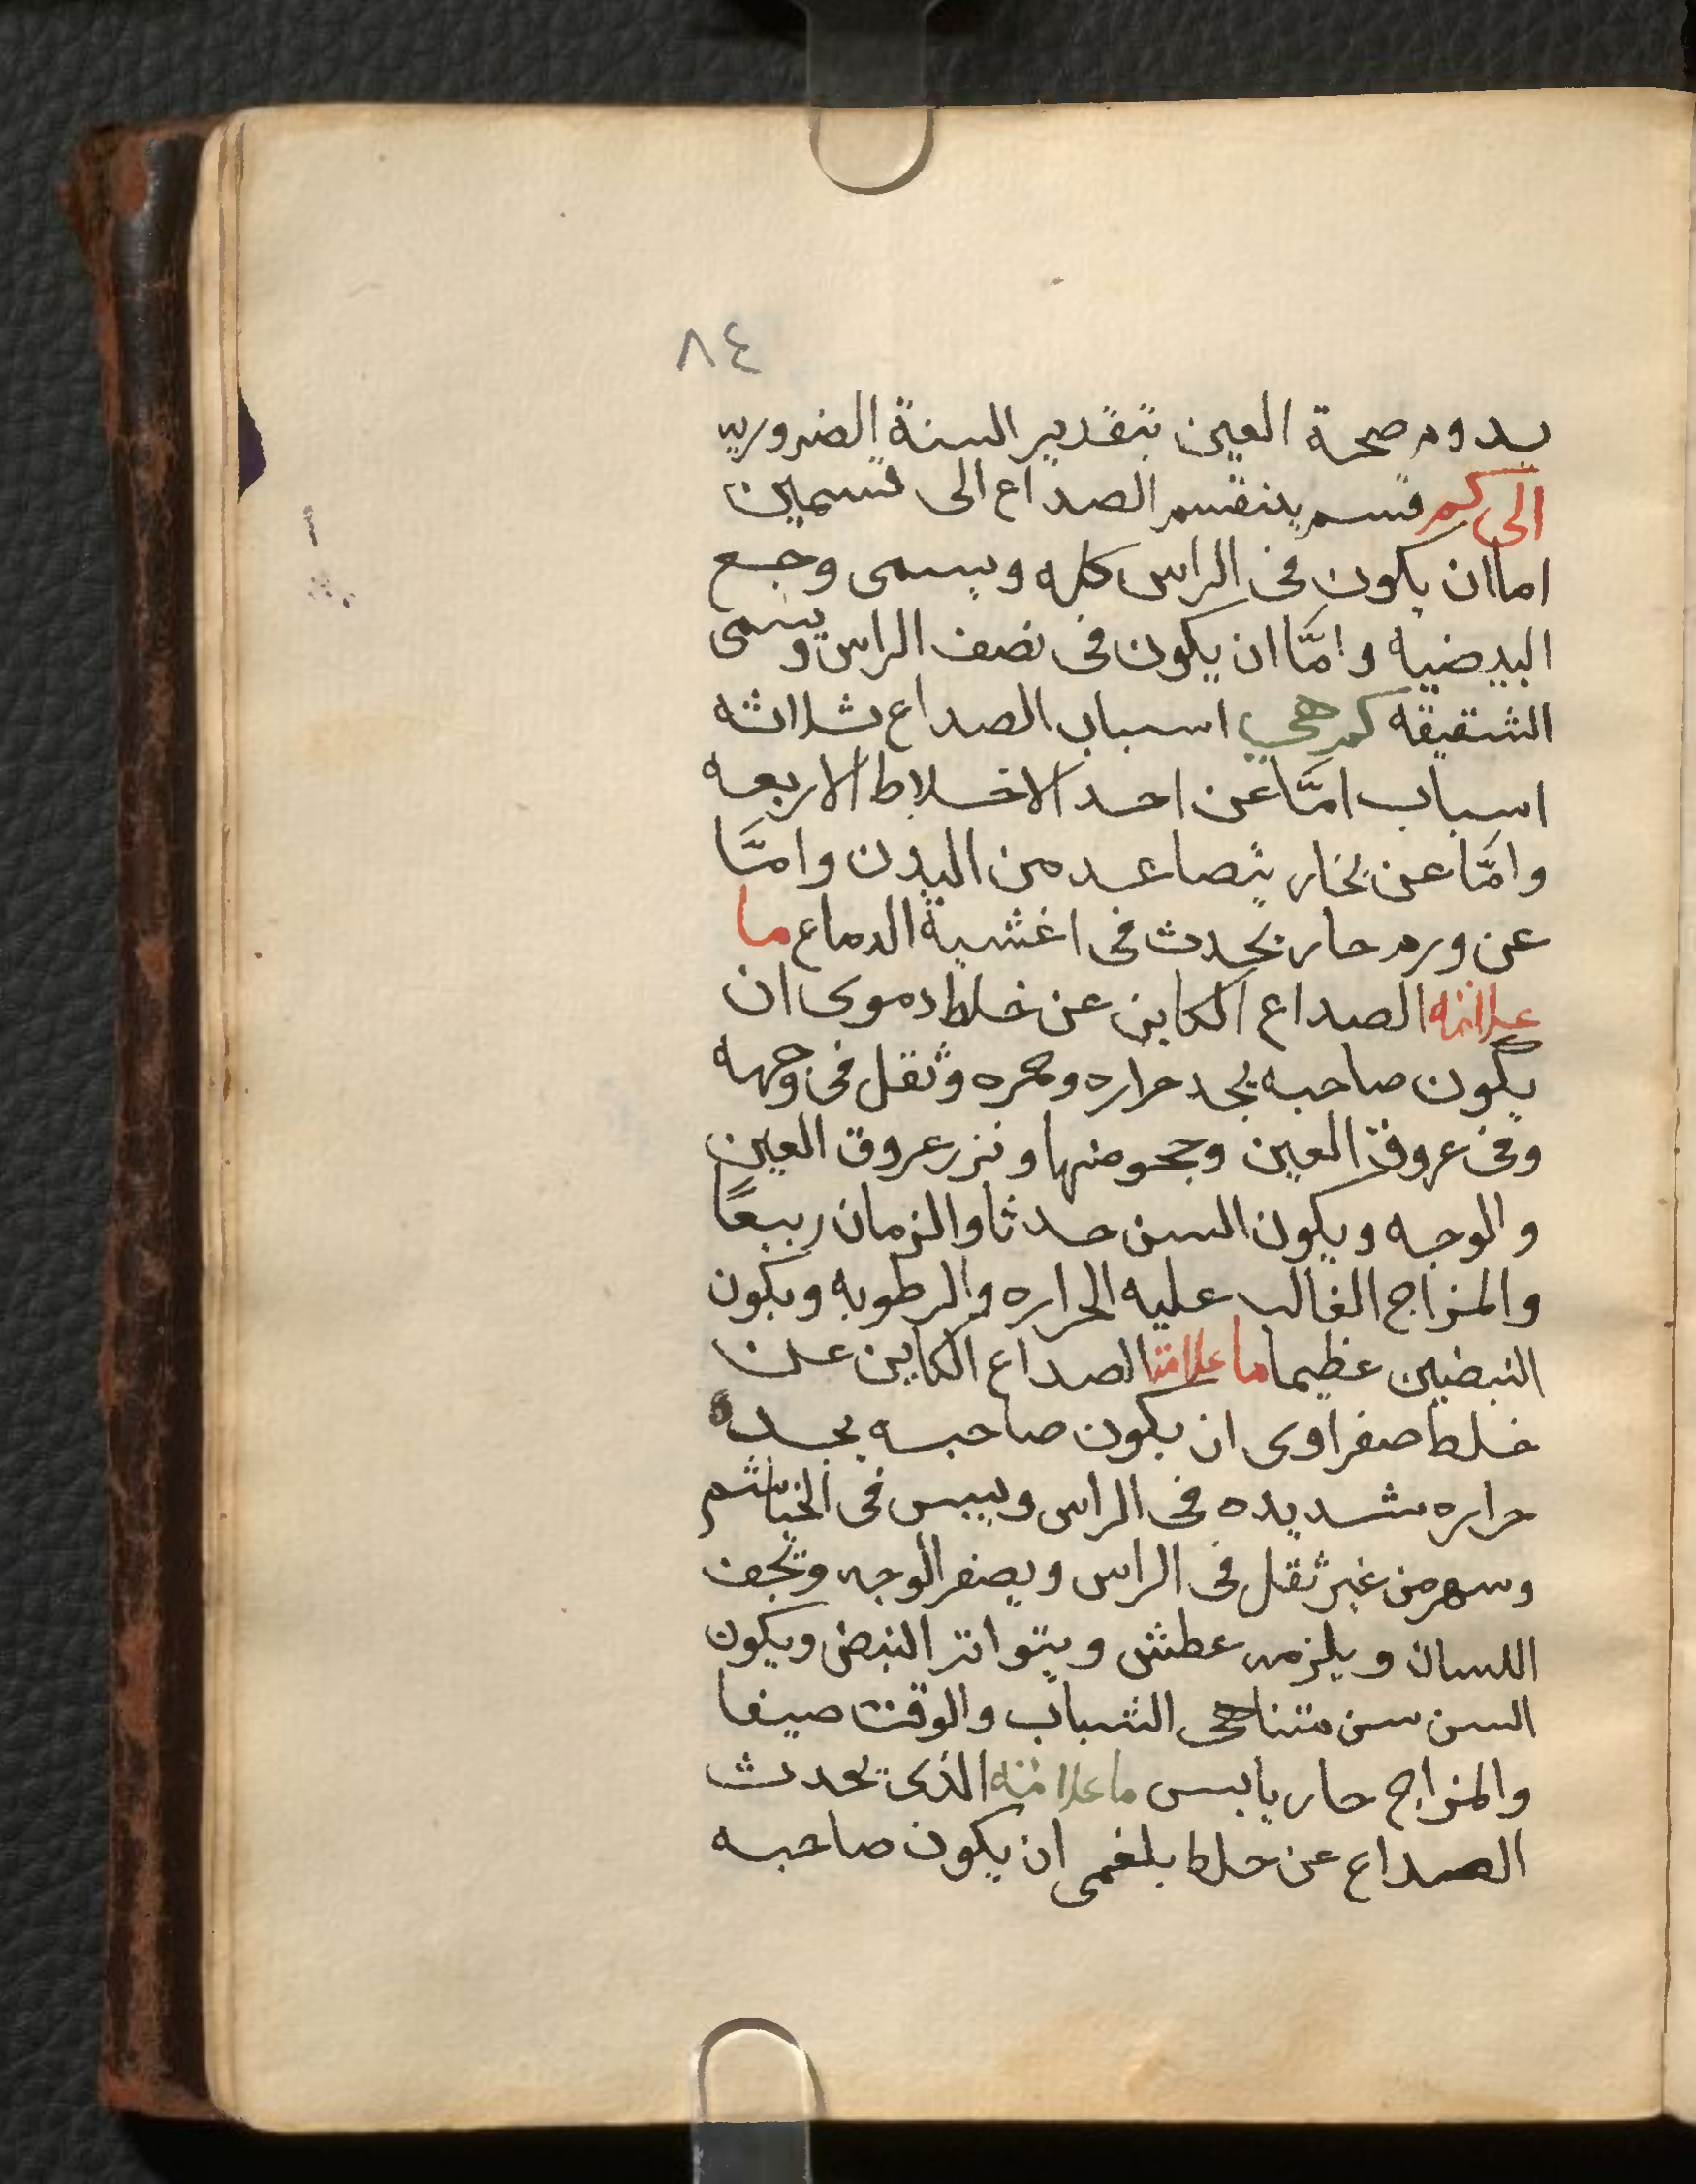 ٨٤
يدوم صحة العين بتقدير الستة الضروريه
الى كم قسم ينقسم الصداع الى قسمين
اما ان يكون فى الراس كله ويسمى وجع
البيضيه وامَّا ان يكون فى نصف الراس ويسمى
الشقيقه كم هي اسباب الصداع ثلاثه
اسباب امَّا عن احد الاخلاط الاربعه
وامَّا عن بخار يتصاعد من البدن وامَّا
عن ورم حار يحدث فى اغشية الدماع ما
علامته الصداع الكاين عن خلط دموى ان
يكون صاحبه يجد حراره وحمره وثقل فى وجهه
وفى عروق العين وجحوضها ونزر عروق العين
والوجه ويكون السن حدثا والزمان ربيعًا
والمزاج الغالب عليه الحراره والرطوبه ويكون
النبضين عظيما ما علامة الصداع الكاين عن
خلط صفراوى ان يكون صاحبه يجد
حراره شديده فى الراس ويبس فى الخياشم
وسهر من غير ثقل فى الراس ويصفر الوجه وتجف
اللسان ويلزمه عطش ويتواتر النبض ويكون
السن سن متناهى الشباب والوقت صيفا
والمزاج حار يابس ما علامته الذى يحدث
الصداع عن خلط بلغمى ان يكون صاحبه